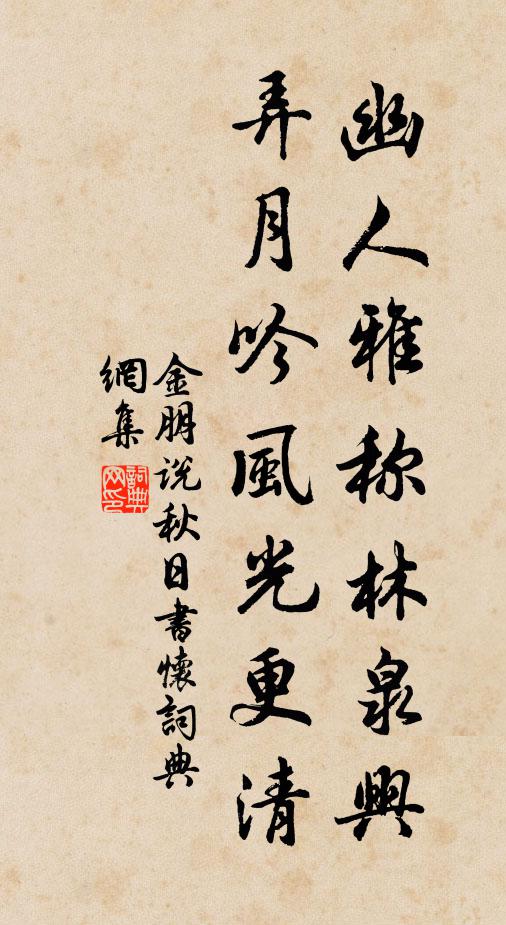 幽人雅称林泉興
弄月吟風光更清
金朋说秋日書懷詞典
網集
詞典
网印